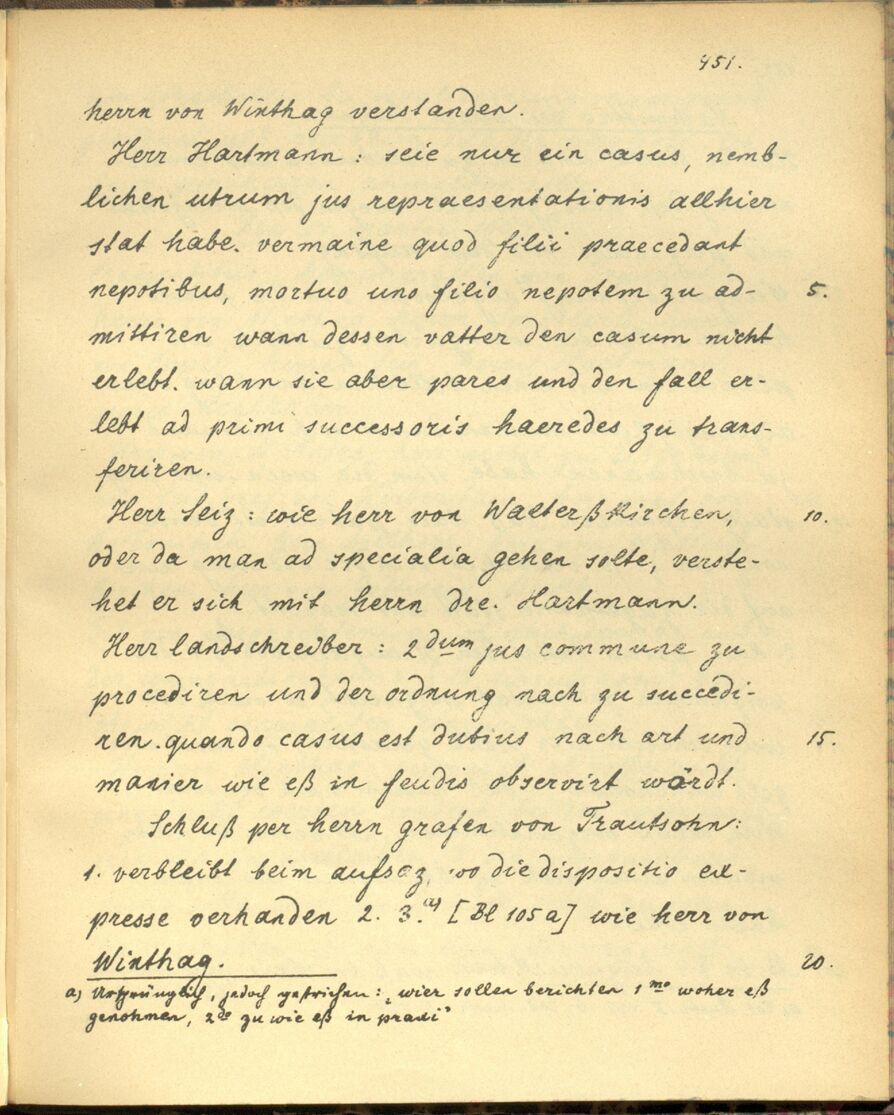 451.
herrn von Winthag verstanden.
Herr Hartmann : seie nur ein casus, nemb-
lichen utrum jus repraesentationis allhier
stat habe. vermaine quod filii praecedant
nepotibus, mortuo uno filio nepotem zu ad- 5.
mittiren wann dessen vatter den casum nicht
erlebt. wann sie aber pares und den fall er-
lebt ad primi successoris haeredes zu trans-
feriren.
Herr Seiz : wie herr von Walterßkirchen, 10.
oder da man ad specialia gehen solte, verste-
het er sich mit herrn dre. Hartmann.
Herr landschreiber : 2dum jus commune zu
procediren und der ordnung nach zu succedi-
ren. quando casus est dubius nach art und 15.
manier wie eß in feudis observirt wördt.
Schluß per herrn grafen von Trautsohn:
1. verbleibt beim aufsaz, wo die dispositio ex-
presse verhanden 2. 3.a) [Bl 105a] wie herr von
Winthag. 20.
a) Ursprünglich, jedoch gestrichen : „wier sollen berichten 1mo woher eß
genohmen, 2do zu wie eß in praxi"